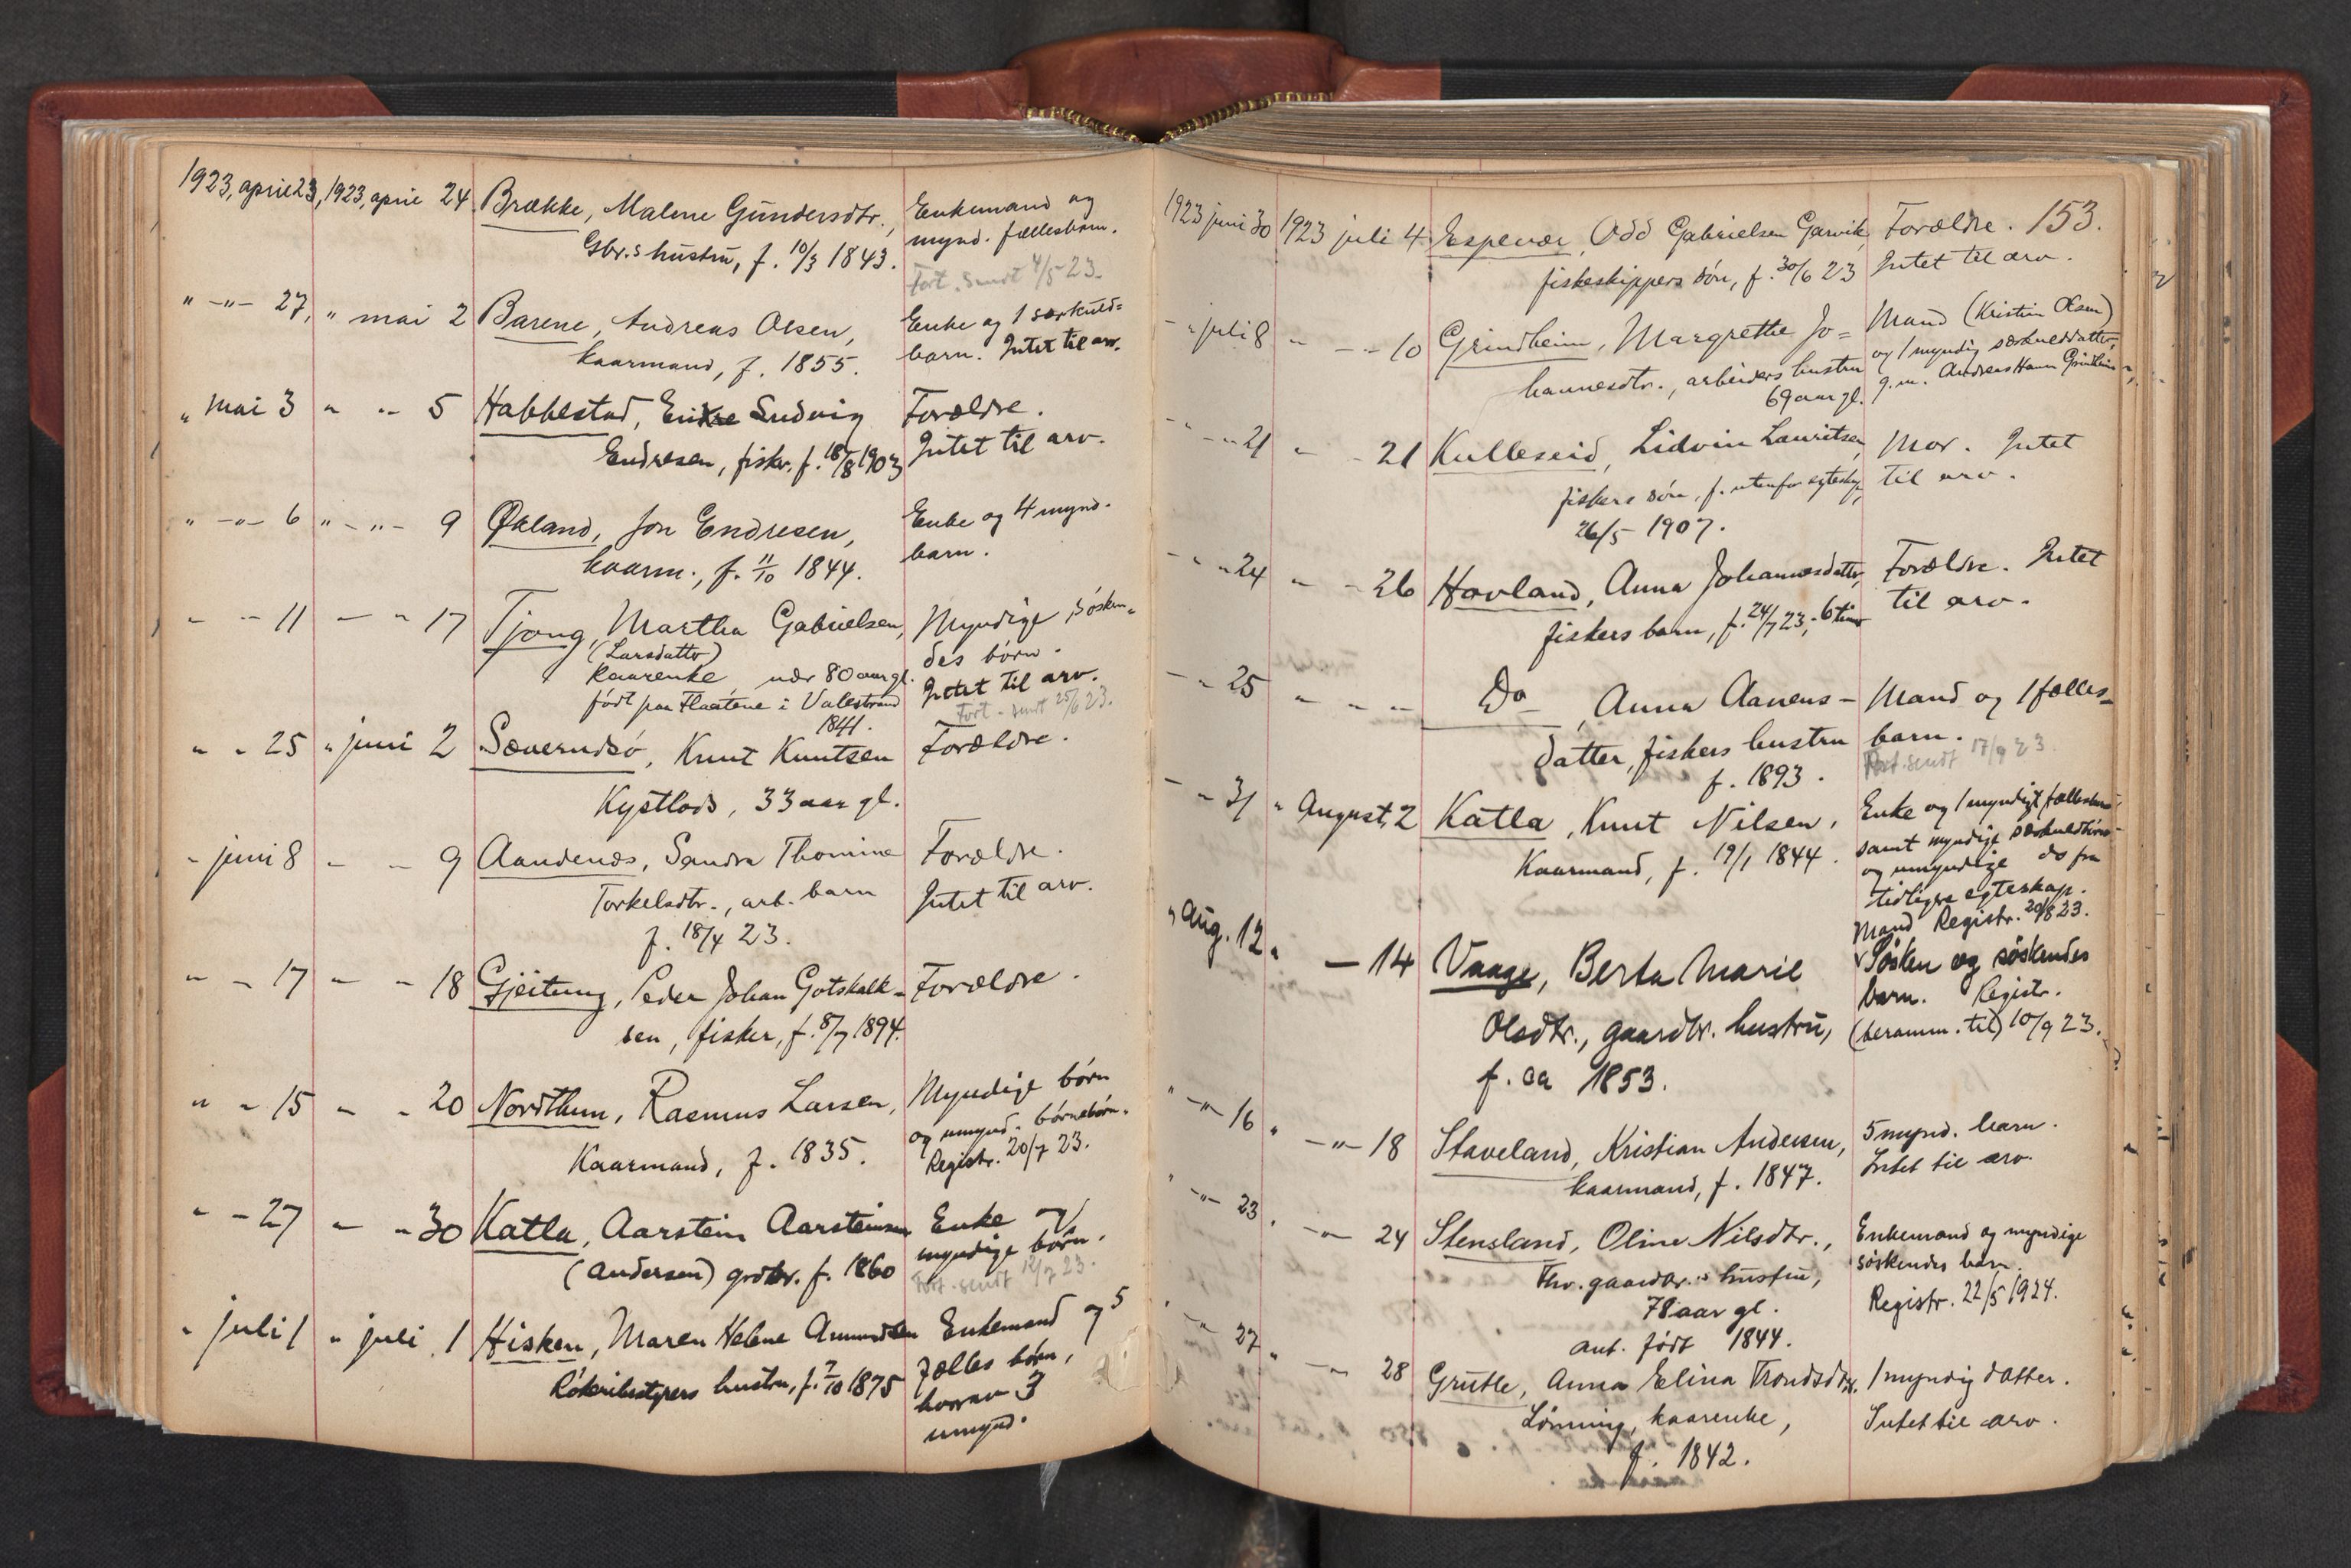 1923, april 23, 1923, april 24 Brække, Malene Gundersdtr., Enkemand og
Gbr.s hustru, f. 10/3 1843. mynd. fællesbarn.
Fort. sendt 4/5 23.
" -"- 27, " mai 2 Barene, Andreas Olsen, Enke og 1 særkuld=
kaarmand, f. 1855. barn. Intet til arv.
" mai 3 " -- 5 Habbestad, Endre Ludvig Forældre.
Endresen, fisker. f. 18/8 1903 Intet til arv.
" -"- 6 " -"- 9 Økland, Jon Endresen, Enke og 4 mynd.
kaarm., f. 11/10 1844. barn.
" -- 11 - " 17 Tjong, Martha Gabrielsen, Myndige søsken-
(Larsdatter) des børn.
kaarenke nær 80 aar gl. Intet til arv.
født paa Flaatene i Valestrand Fort. sendt 25/6 23.
1841.
" " 25 " juni 2 Sæverudsø, Knut Knutsen Forældre.
Kystlods, 33 aar gl.
" juni 8 - - 9 Aandenæs, Sandra Thomine Forældre.
Torkelsdtr., arb. barn Intet til arv.
f. 18/4 23.
" - 17 - " 18 Gjeitung, Peder Johan Gotskalk- Forældre.
sen, fisker, f. 8/7 1894.
" - 15 " - 20 Nordthun, Rasmus Larsen, Myndige børn
Kaarmand, f. 1835. og umynd. børnebørn.
Registr. 20/7 23.
" - 27 - " 30 Katla, Aarstein Aarsteinsen Enke og
(Andersen) grdbr. f. 1860 myndige børn.
Fort. sendt 12/7 23.
" juli 1 " juli 1 Hisken, Maren Helene Amundsen Enkemand og 5
hustru, f. 7/10 1875 fælles børn,
hvorav 3
umynd.
153.
1923 juni 30 1923 juli 4 Espevær, Odd Gabrielsen Garvik Forældre.
fiskeskippers søn, f. 30/6 23 Intet til arv.
- " juli 8 " - " 10 Grindheim, Margrethe Jo= Mand (Kristin Olsen)
hannesdtr., arbeiders hustru og 1 myndig særkulddatter,
69 aar gl. g.m. Andreas Grindheim
" - " 21 " - 21 Kulleseid, Lidvin Lauritsen, Mor. Intet
fiskers søn, f. utenfor egteskap, til arv.
26/5 1907.
- " " 24 " - 26 Hovland, Anna Johannesdatter, Forældre. Intet
fiskers barn, f. 24/7 23, 6 timer til arv.
- " 25 " - " - Do, Anna Aanens- Mand og 1 fælles-
datter, fiskers hustru barn.
f. 1893. Fort. sendt 17/9 23.
- " 31 " August, 2 Katla, Knut Nilsen, Enke og 1 myndigt fællesbarn
Kaarmand, f. 19/1 1844. samt myndige særkuldbørn
og umyndige do fra
tidligere egteskap.
Registr. 20/8 23.
" Aug. 12 " - 14 Vaage, Berta Marie Mand
Olsdtr., gaardbr. hustru, Søsken og søskendes
f. ca 1853. barn. Registr.
(beramm. til) 10/9 23.
" -"- 16 " -"- 18 Staveland, Kristian Andersen, 5 mynd. barn.
kaarmand, f. 1847. Intet til arv.
" -"- 23 " -"- 24 Stensland, Oline Nilsdtr., Enkemand og myndige
Fhv. gaardbr.s hustru, søskendes barn.
78 aar gl. Registr. 22/5 1924.
ant. født 1844.
" -"- 27 " -"- 28 Grutle, Anna Elina Trondsdtr. 1 myndig datter.
Lønning, kaarenke, Intet til arv.
f. 1842.